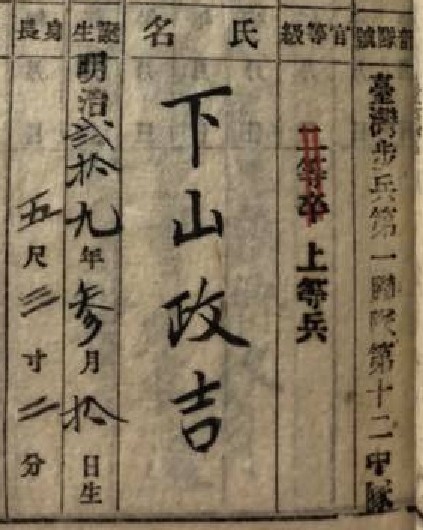 部隊號
臺灣步兵第一聯隊第十二中隊
官等級
二等卒 上等兵
氏名
下山政吉
誕生
明治貳拾九年參月拾日生
身長
五尺三寸二分